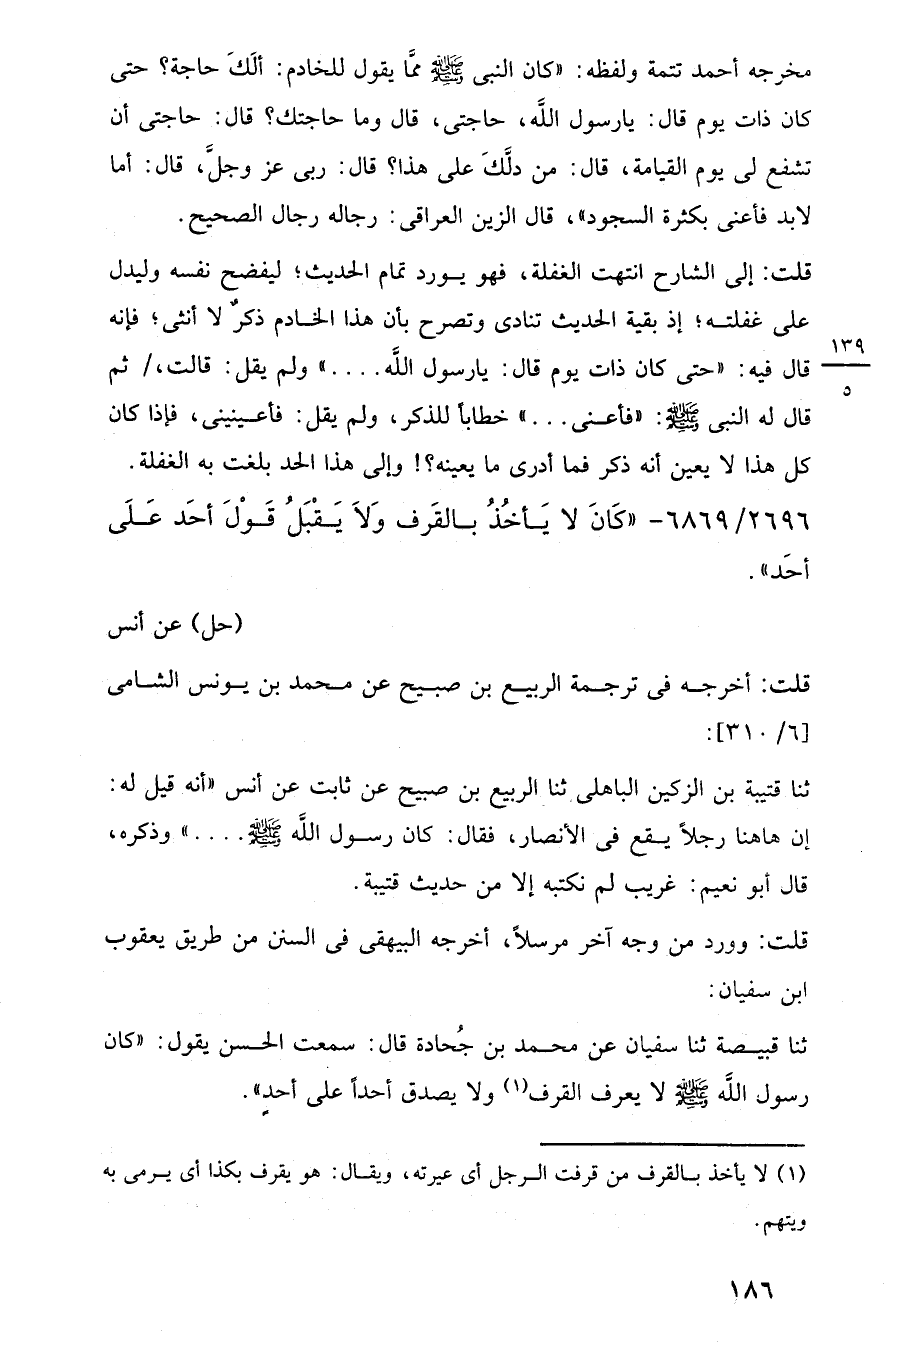 مخرجه أحمد تتمة ولفظه: «كان النبى ﷺ ممَّا يقول للخادم: ألَكَ حاجة؟ حتى
كان ذات يوم قال: يارسول اللَّه، حاجتى، قال وما حاجتك؟ قال: حاجتى أن
تشفع لى يوم القيامة، قال: من دلَّكَ على هذا؟ قال: ربى عز وجلَّ، قال: أما
لابد فأعنى بكثرة السجود»، قال الزين العراقى: رجاله رجال الصحيح.
قلت: إلى الشارح انتهت الغفلة، فهو يورد تمام الحديث؛ ليفضح نفسه وليدل
على غفلته؛ إذ بقية الحديث تنادى وتصرح بأن هذا الخادم ذكرٌ لا أنثى؛ فإنه
١٣٩
قال فيه: «حتى كان ذات يوم قال: يارسول اللَّه....» ولم يقل: قالت،/ ثم
٥
قال له النبى ﷺ: «فأعنى...» خطاباً للذكر، ولم يقل: فأعينينى، فإذا كان
كل هذا لا يعين أنه ذكر فما أدرى ما يعينه؟! وإلى هذا الحد بلغت به الغفلة.
٢٦٩٦/ ٦٨٦٩- «كَانَ لا يَأخُذُ بالقَرف ولاَ يَقْبَلُ قَوْلَ أحَد عَلَى
أحَد».
(حل) عن أنس
قلت: أخرجه فى ترجمة الربيع بن صبيح عن محمد بن يونس الشامى
[٦/ ٣١٠]:
ثنا قتيبة بن الزكين الباهلى ثنا الربيع بن صبيح عن ثابت عن أنس «أنه قيل له:
إن هاهنا رجلاً يقع فى الأنصار، فقال: كان رسول اللَّه ﷺ....» وذكره،
قال أبو نعيم: غريب لم نكتبه إلا من حديث قتيبة.
قلت: وورد من وجه آخر مرسلاً، أخرجه البيهقى فى السنن من طريق يعقوب
ابن سفيان:
ثنا قبيصة ثنا سفيان عن محمد بن جُحادة قال: سمعت الحسن يقول: «كان
رسول اللَّه ﷺ لا يعرف القرف(١) ولا يصدق أحداً على أحدٍ».
(١) لا يأخذ بالقرف من قرفت الرجل أى عيرته، ويقال: هو يقرف بكذا أى يرمى به
ويتهم.
١٨٦